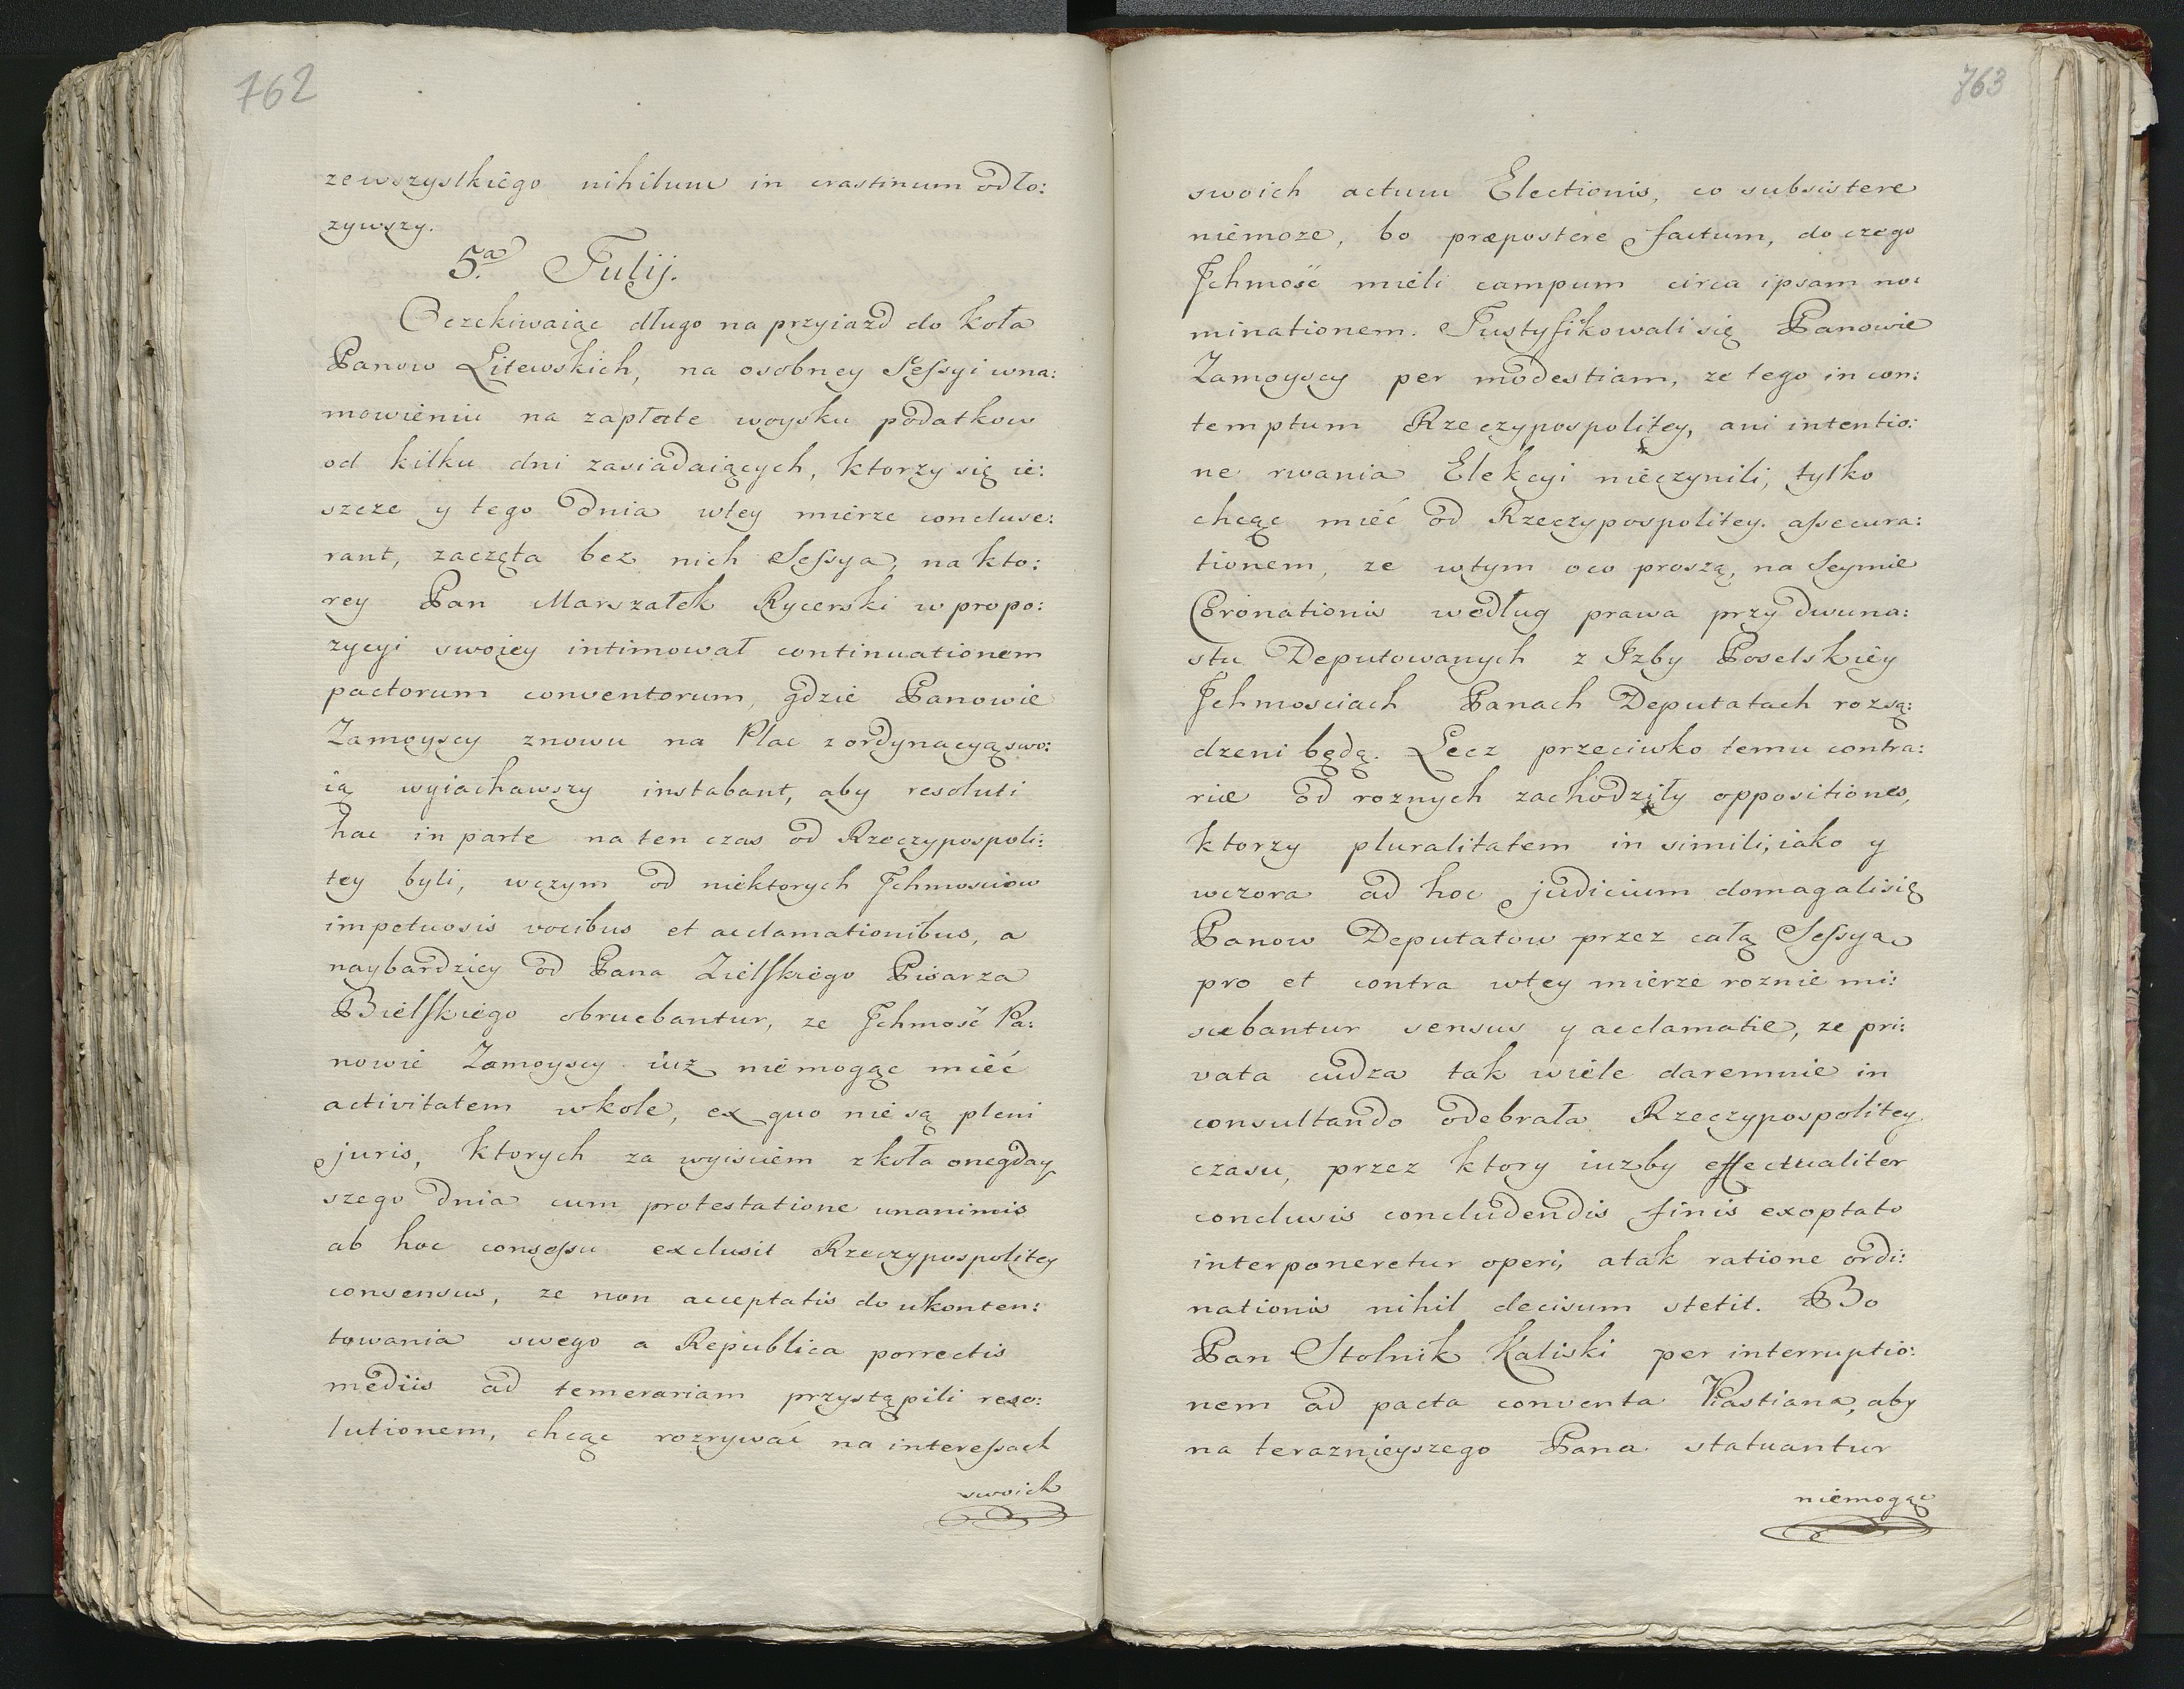 762
zewszystkiego nihilum in crastinum odło:
zywszy.
5.a Julij.
Oczekiwaiąc długo na przyiazd do koła
Panow Litewskich, na osobney Sessyi wna:
mowieniu na zapłate woysku podatkow
od kilku dni zasiadaiących, ktorzy się ie:
szcze y tego dnia wtey mierze concluse:
rant, zaczęta bez nich Sessya, na kto:
rey Pan Marszałek Rycerski w propo:
zycyi swoiey intimował continuationem
pactorum conventorum, gdzie Panowie
Zamoyscy znowu na Plac z ordynacyą swo:
ią wyiachawszy instabant, aby resoluti
hac in parte na ten czas od Rzeczypospoli:
tey byli, wczym od niektorych Jchmosciow
impetuosis vocibus et acclamationibus, a
naybardziey od Pana Zielskiego Pisarza
Bielskiego obruebantur, ze Jchmość Pa:
nowie Zamoyscy iuż niemogąc mieć
activitatem wkole, ex quo nie są pleni
juris, ktorych za wyisciem z koła onegday
szego dnia cum protestatione unanimis
ab hoc consessu exclusit Rzeczypospolitey
consensus, ze non acceptatis do ukonten:
towania swego a Republica porrectis
mediis ad temerariam przystąpili reso:
lutionem, chcąc rozrywać na interessach
swoich
763
swoich actum Electionis, co subsistere
niemoze, bo præpostere factum, do czego
Jchmość mieli campum circa ipsam no:
minationem. Justyfikowali się Panowie
Zamoyscy per modestiam, ze tego in con:
temptum Rzeczypospolitey, ani intentio:
ne rwania Elekcyi nieczynili, tylko
chcąc mieć od Rzeczypospolitey assecura:
tionem, ze wtym oco proszą, na Seymie
Coronationis według prawa przy dwuna:
stu Deputowanych z Izby Poselskiey
Jchmosciach Panach Deputatach rozsą:
dzeni będą. Lecz przeciwko temu contra:
riæ od roznych zachodziły oppositiones,
ktorzy pluralitatem in simili, iako y
wczora ad hoc judicium domagalisię
Panow Deputatow przez całą Sessya
pro et contra wtey mierze roznie mi:
scebantur sensus y acclamatie, ze pri:
vata cudza tak wiele daremnie in
consultando odebrała Rzeczypospolitey
czasu, przez ktory iuzby effectualiter
conclusis concludendis finis exoptato
interponeretur operi, atak ratione ordi:
nationis nihil decisum stetit. Bo
Pan Stolnik Kaliski per interruptio:
nem ad pacta conventa Piastiana, aby
na teraznieyszego Pana statuantur
niemogąc